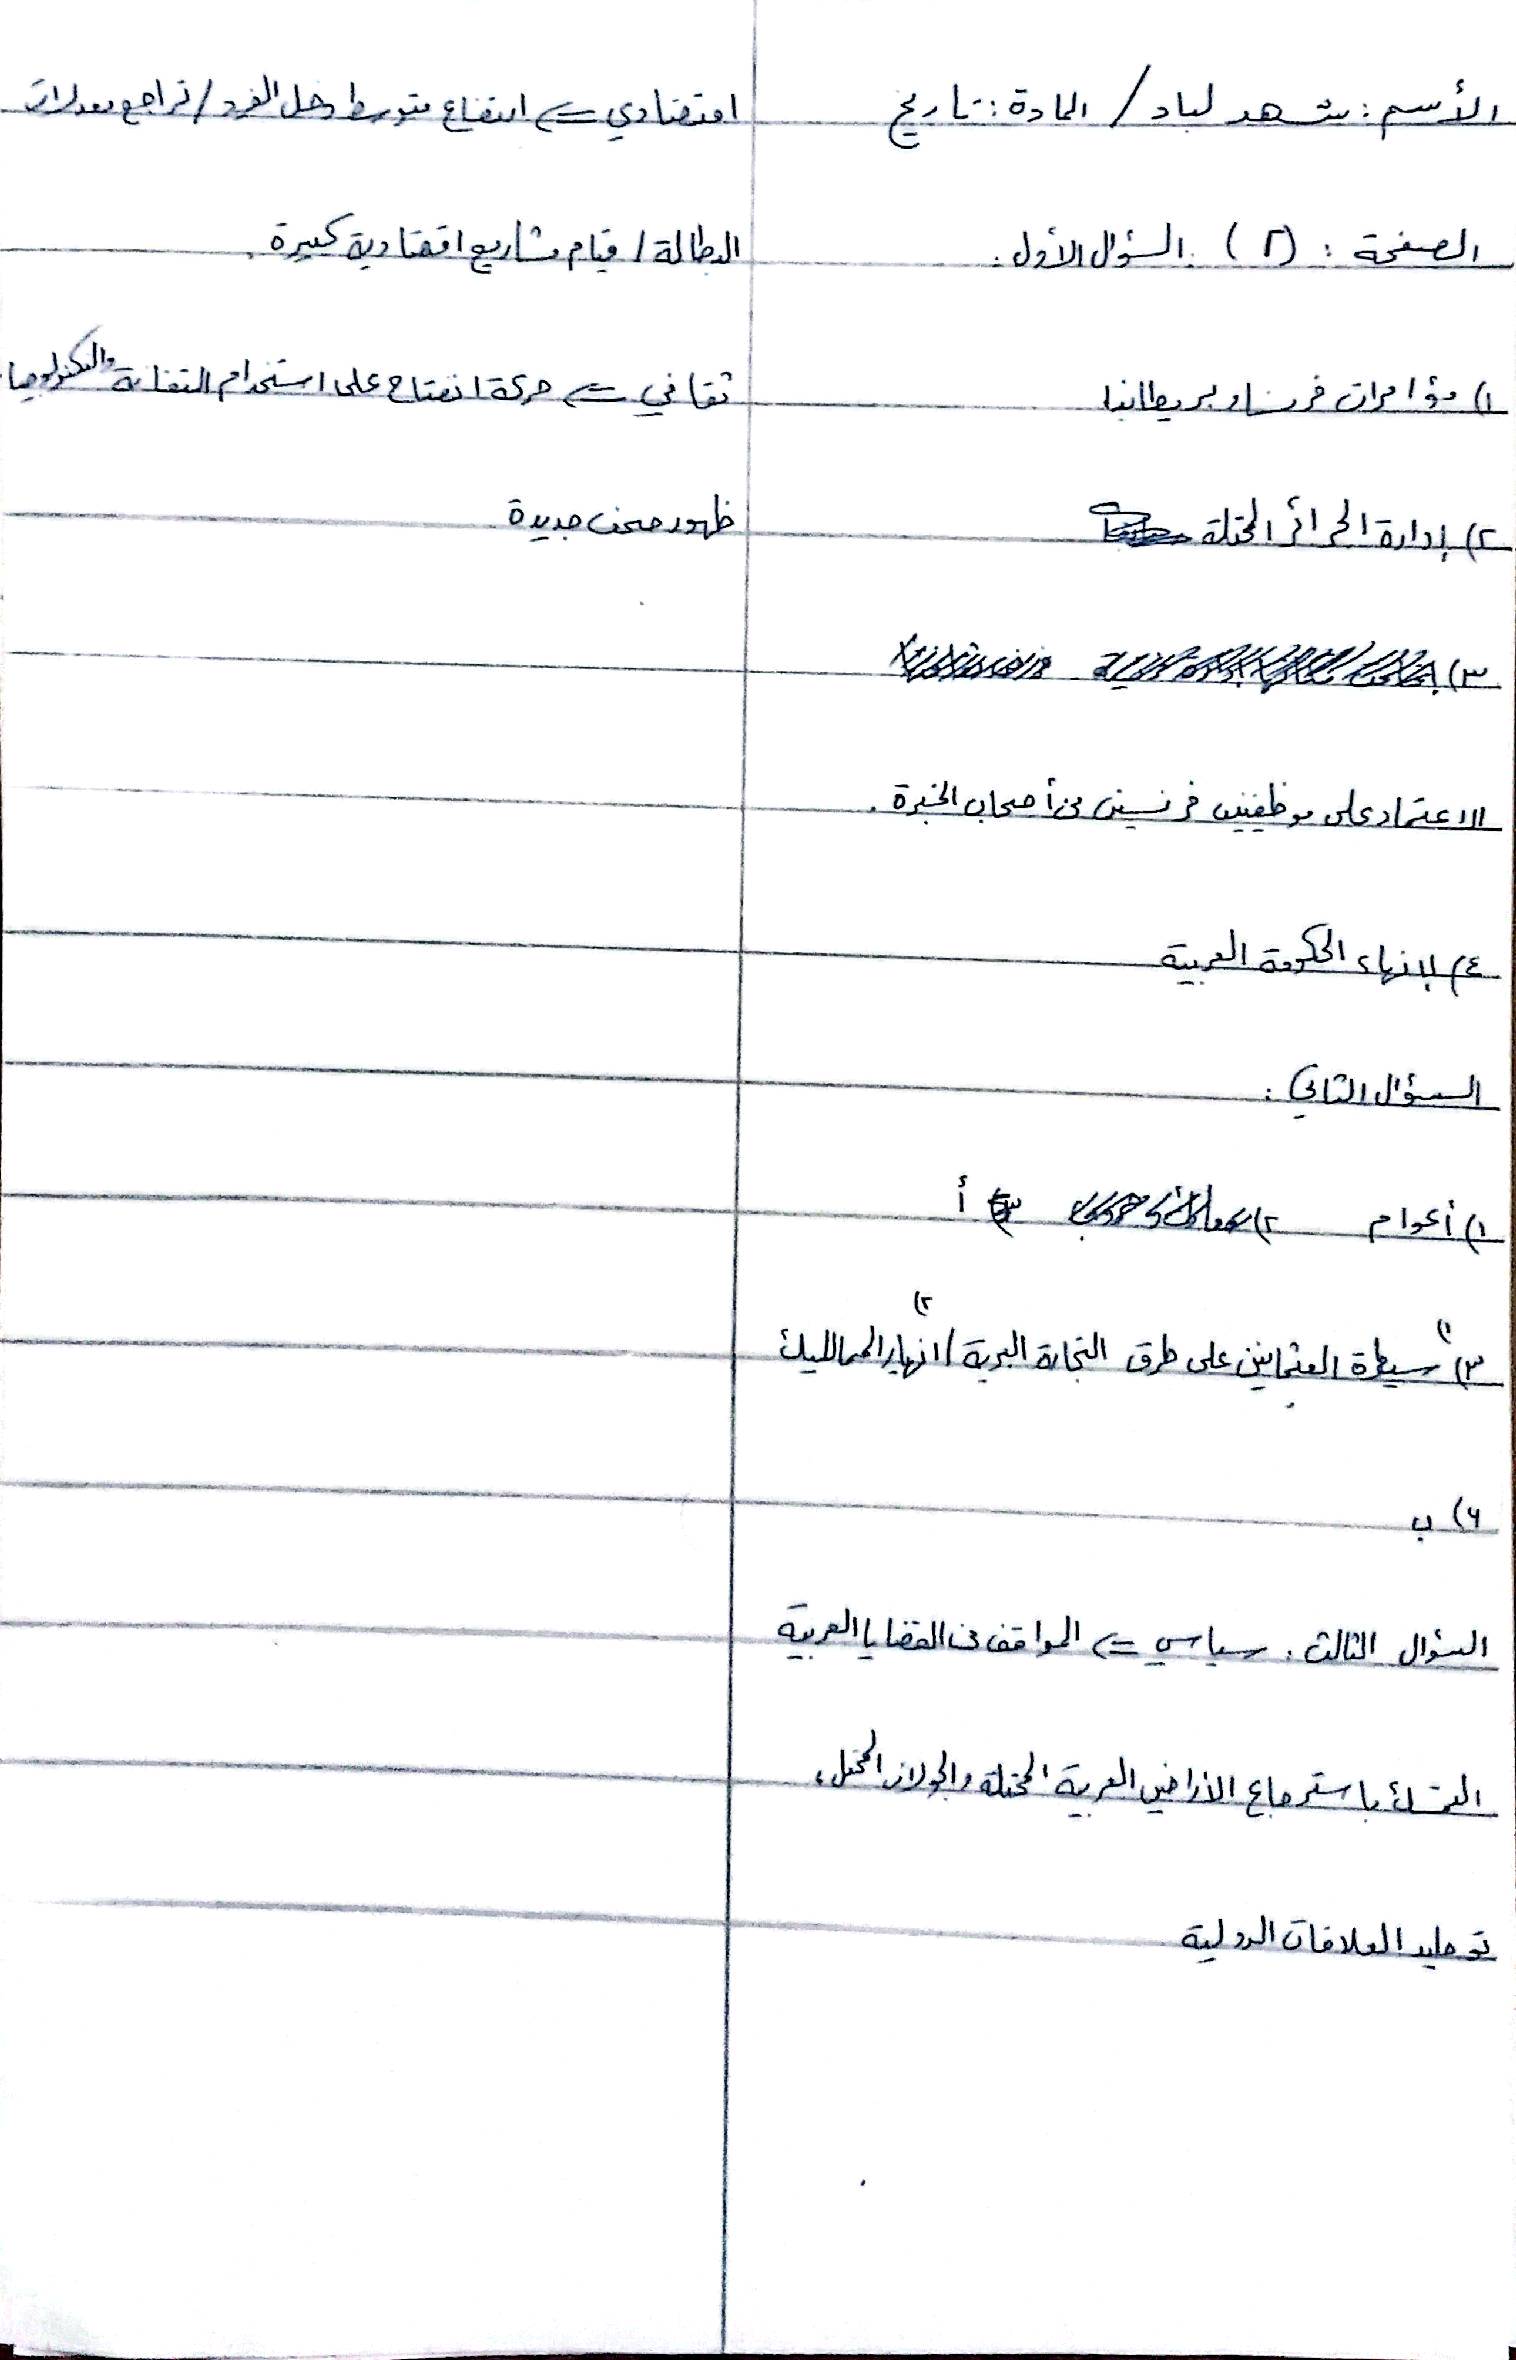 الأسم : شهد لباد / المادة : تاريخ
الصفحة : (٢) السؤال الأول :
١) مؤامرات فرنسا وبريطانيا
٢) إدارة الجزائر المحتلة
٣)
الاعتماد على موظفين فرنسيين من أصحاب الخبرة .
٤) لإنهاء الحكومة العربية
السؤال الثاني :
١) أعوام ٢) أ
٣) ١) سيطرة العثمانيين على طرق التجارة البرية / ٢) انهيار المماليك
٦) ب
السؤال الثالث : سياسي => المواقف من القضايا العربية
التمسك باسترجاع الأراضي العربية المحتلة والجولان المحتل ،
توطيد العلاقات الدولية
اقتصادي => ارتفاع متوسط دخل الفرد / تراجع معدلات
البطالة / قيام مشاريع اقتصادية كبيرة .
ثقافي => حركة انفتاح على استخدام التقانة والتكنولوجيا
ظهور صحف جديدة